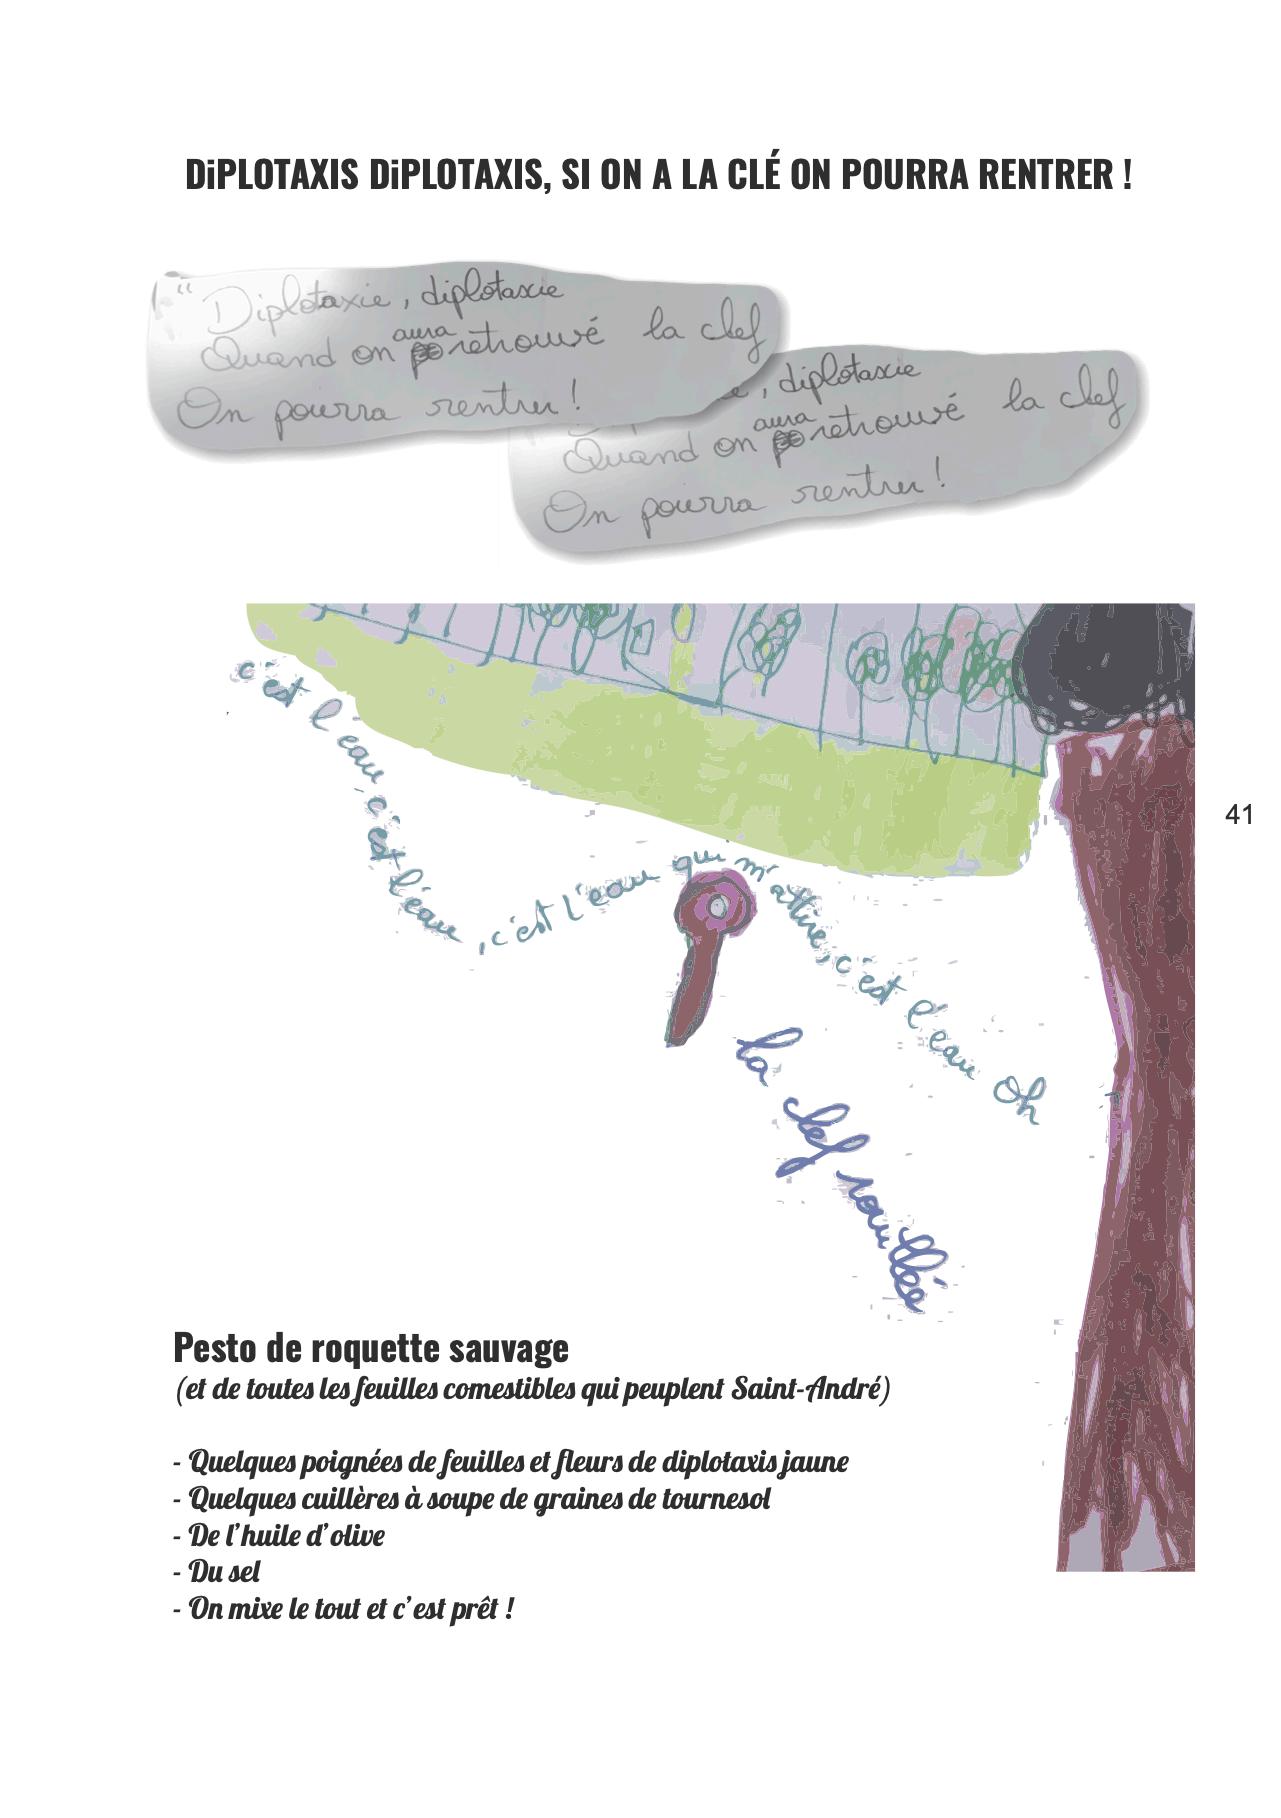 DiPLOTAXIS DiPLOTAXIS, SI ON A LA CLÉ ON POURRA RENTRER !
" Diplotaxie, diplotaxie
Quand on aura retrouvé la clef
On pourra rentrer !
e, diplotaxie
Quand on aura retrouvé la clef
On pourra rentrer !
c'est l'eau, c'est l'eau, c'est l'eau qui m'attire, c'est l'eau oh
la clef rouillée
41
Pesto de roquette sauvage
(et de toutes les feuilles comestibles qui peuplent Saint-André)
- Quelques poignées de feuilles et fleurs de diplotaxis jaune
- Quelques cuillères à soupe de graines de tournesol
- De l'huile d'olive
- Du sel
- On mixe le tout et c'est prêt !